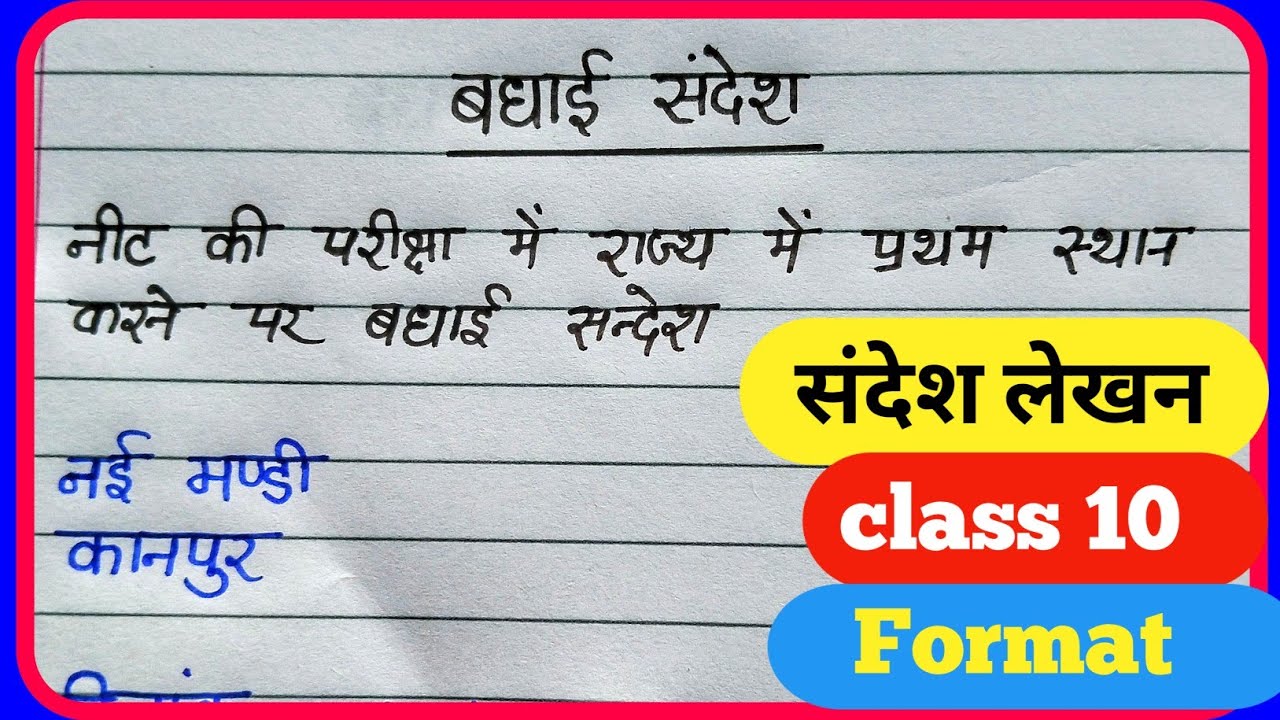 बधाई संदेश
नीट की परीक्षा में राज्य में प्रथम स्थान
करने पर बधाई सन्देश
संदेश लेखन
class 10
Format
नई मण्डी
कानपुर